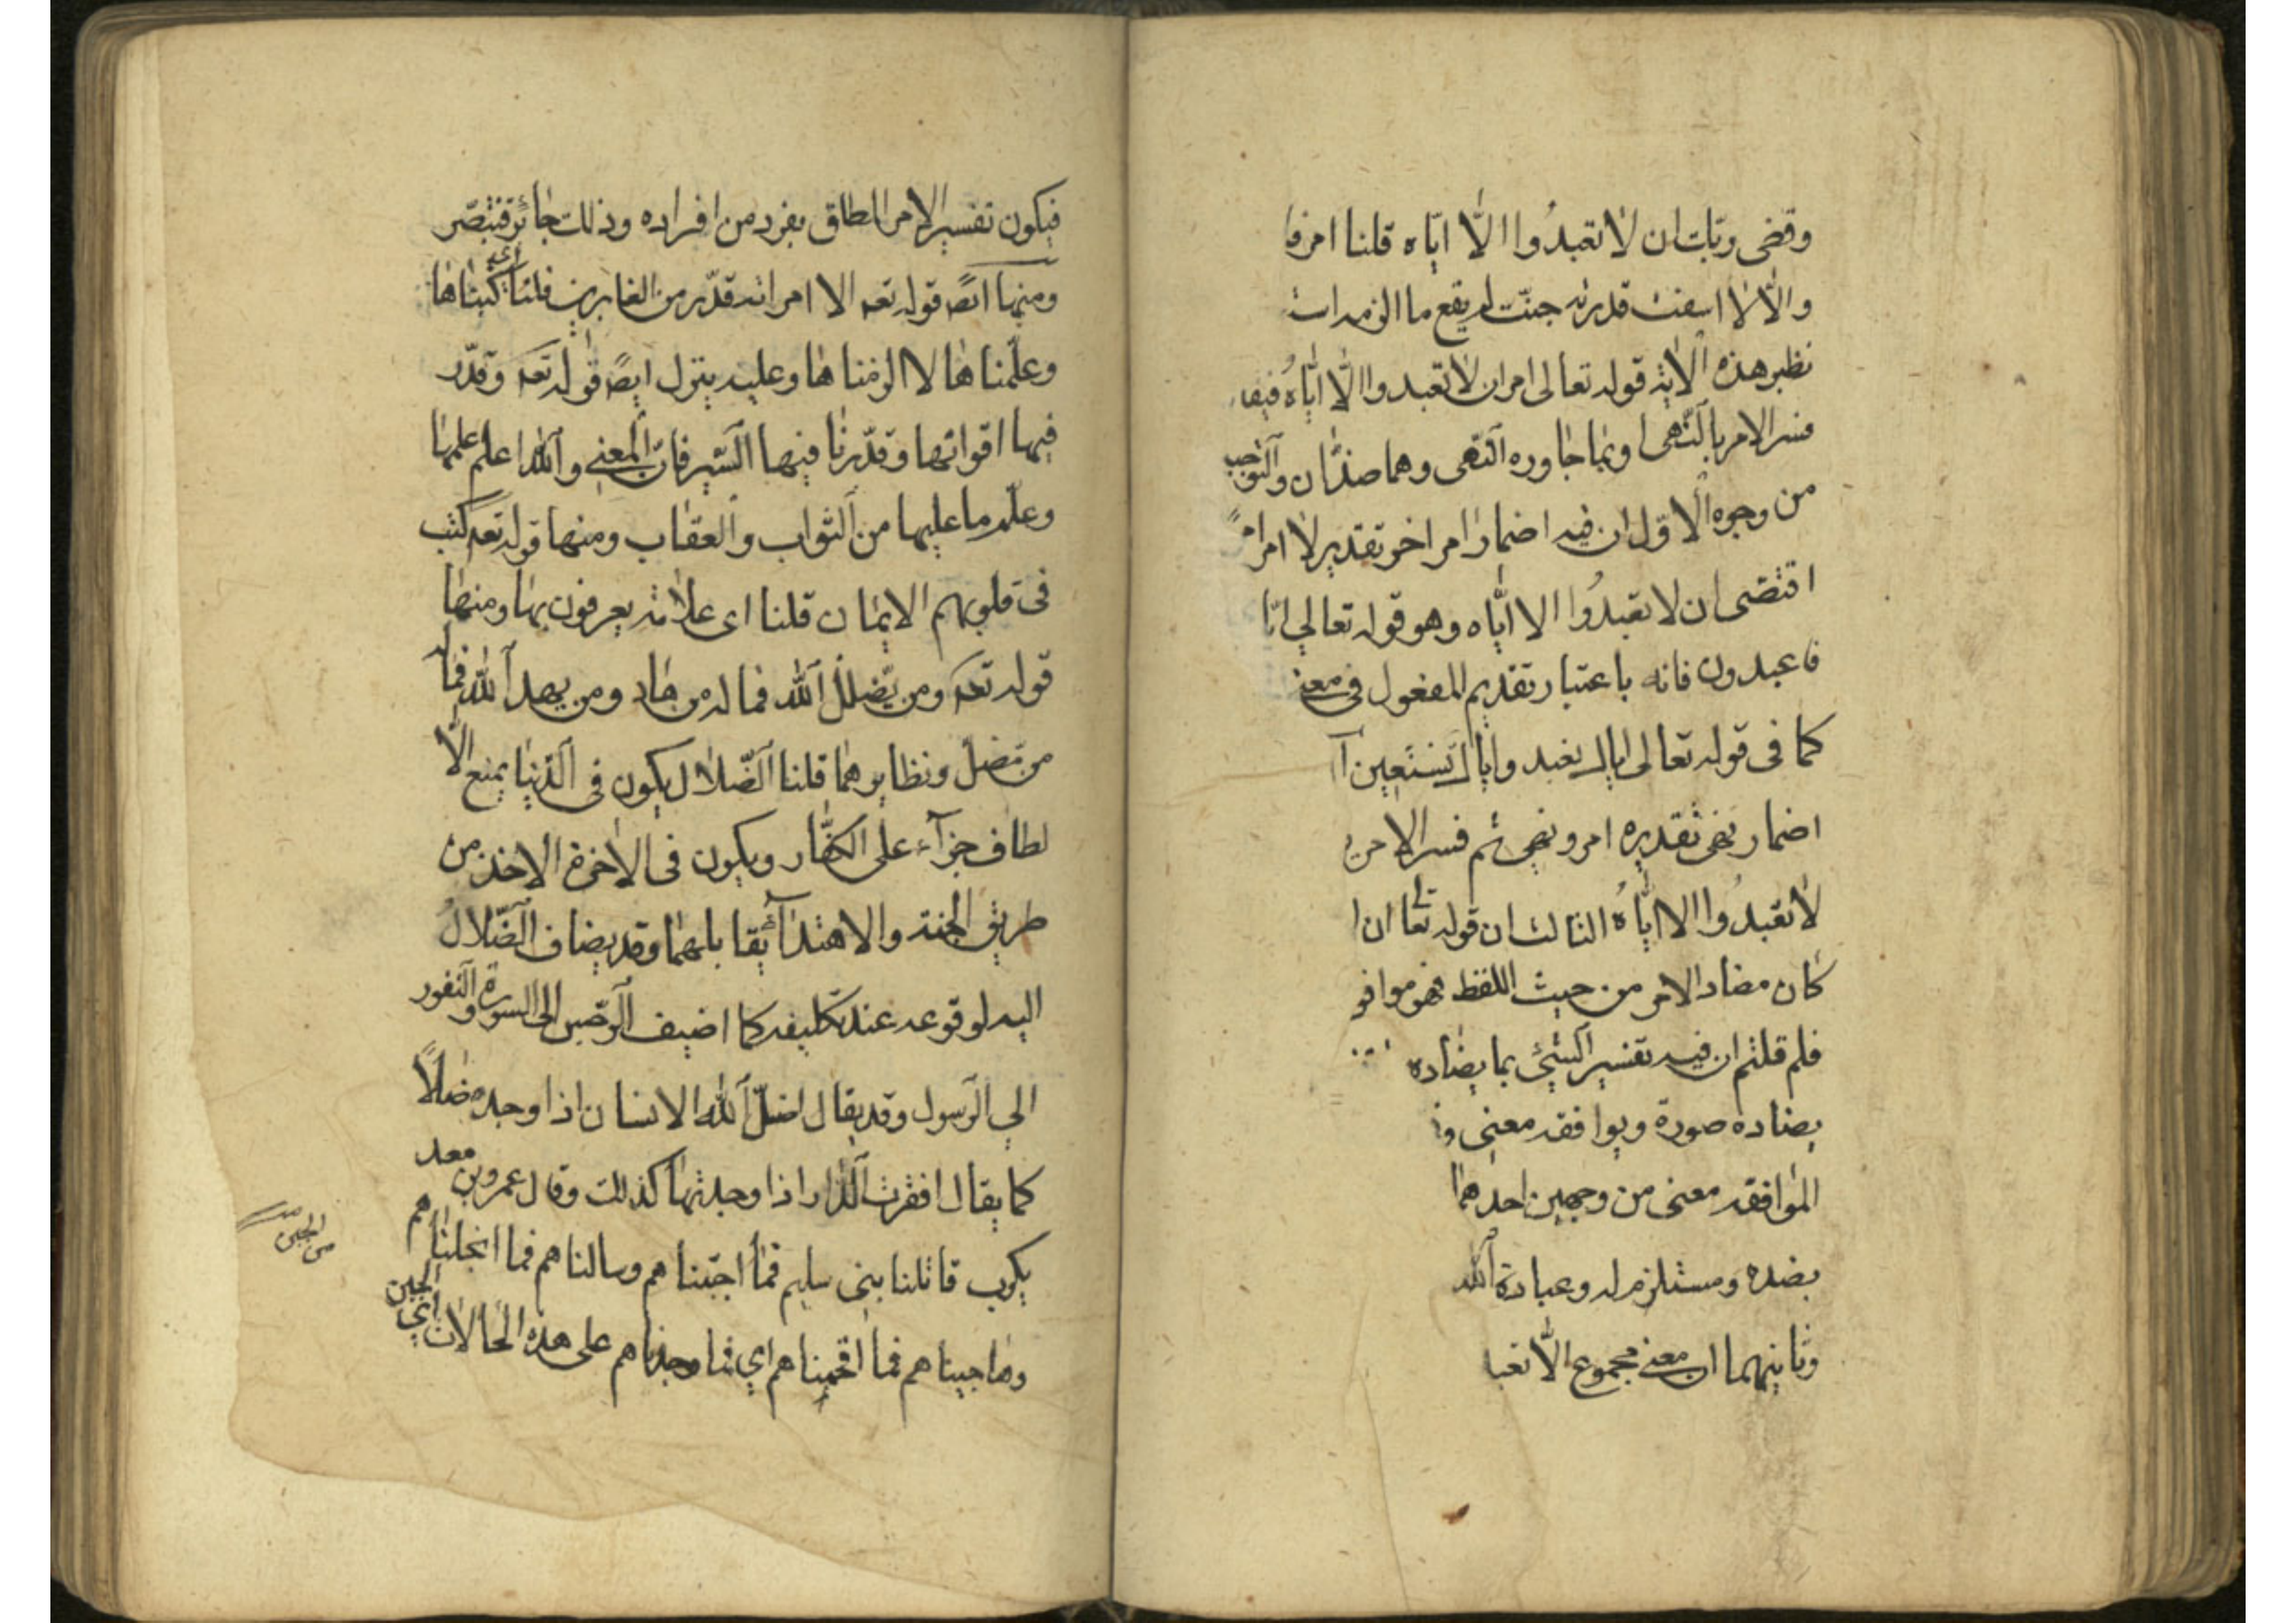 وقضى ربّك ان لا تعبدُوا الّا ايّاه قلنا امر
والّا لا قدرته يقع ما الزمه
نظير هذه الاية قوله تعالى امر ان لا تعبدوا الّا ايّاهُ
فسر الامر بالنّهى وبما جاوره النّهى وهما ضدّان
من وجوه الاوّل ان فيه اضمار امر اخر تقديره امر امرا
اقتضى ان لا تعبدُوا الا ايّاه وهو قوله تعالي
فاعبدون فانه باعتبار تقديم المفعول فى معنى
كما فى قوله تعالى اياك نعبد واياك نستعين
اضمار نهى تقديره امر ونهى ثم فسر الامر
لا تعبدُوا الا ايّاهُ الثالث ان قوله تعا ان
كان مضاد الامر من حيث اللفظ فهو
فلم قلتم ان فيه تفسير الشئ بما يضاده
يضاده صورة ويوافقه معنى
الموافقه معنى من وجهين احدهما
بضده ومستلزم له وعبادة الله
وثانيهما ان معنى مجموع الّا
فيكون تفسير الامر المطلق بفرد من افراده وذلك جائز فتبصّر
ومنها ايضً قوله تعه الا امراته قدّر من الغابرين قلنا اى كتبناها
وعلّمناها لا الزمناها وعليه يتزل ايضً قوله تعه وقدّر
فيها اقواتها وقدّرنا فيها السّير فانّ المعنى والله اعلم علمها
وعلم ما عليها من الثواب والعقاب ومنها قوله تعه كتب
فى قلوبهم الايمان قلنا اى علامة يعرفون بها ومنها
قوله تعه ومن يضلل الله فما له من هاد ومن يهد الله فما له
من مضلّ ونظايرهما قلنا الضّلال يكون فى الدّنيا بمنع الا
لطاف جزآء على الكفّار ويكون فى الاخرة الاخذ من
طريق الجنة والاهتدآء يقابلهما وقد يضاف الضّلالُ
اليه لوقوعه عند تكليفه كما اضيف الرّجس الى السورة والنّفور
الي الرّسول وقد يقال اضلّ الله الانسان اذا وجده ضالاًّ
كما يقال افقرت الدّار اذا وجدتها كذلك وقال عمرو بن معد
يكرب قاتلنا بنى سليم فما اجبناهم وسالناهم فما انجلناهم
وهاجيناهم فما افحمناهم اي فما وجدناهم على هذه الحالات اي الجبن
من الجبن صـ